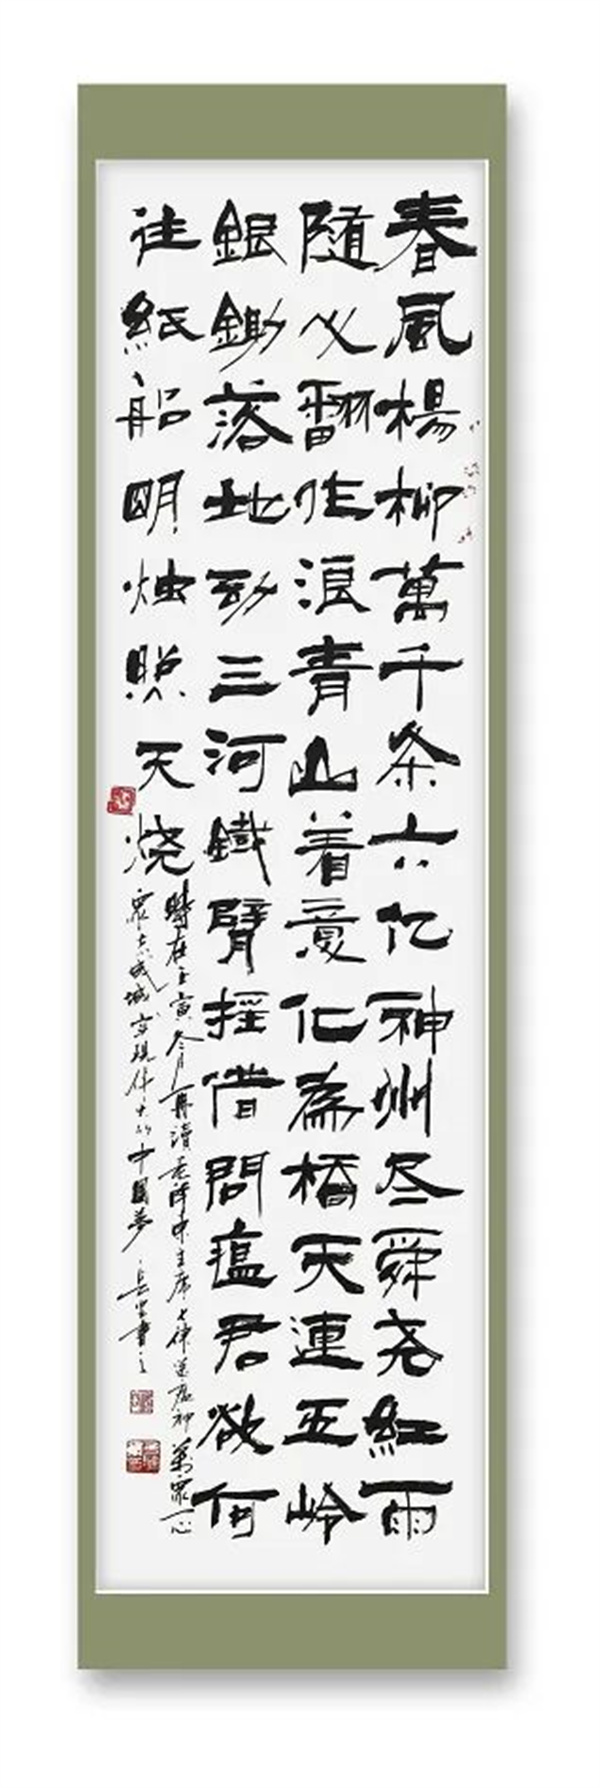 春風楊柳萬千条六亿神州尽舜尧紅雨
隨心翻作浪青山着意化為橋天連五岭
銀鋤落地動三河鐵臂摇借問瘟君欲何
往紙船明烛照天烧
時在壬寅冬月再讀毛澤東主席七律送瘟神萬眾一心
眾志成城实現伟大的中國梦